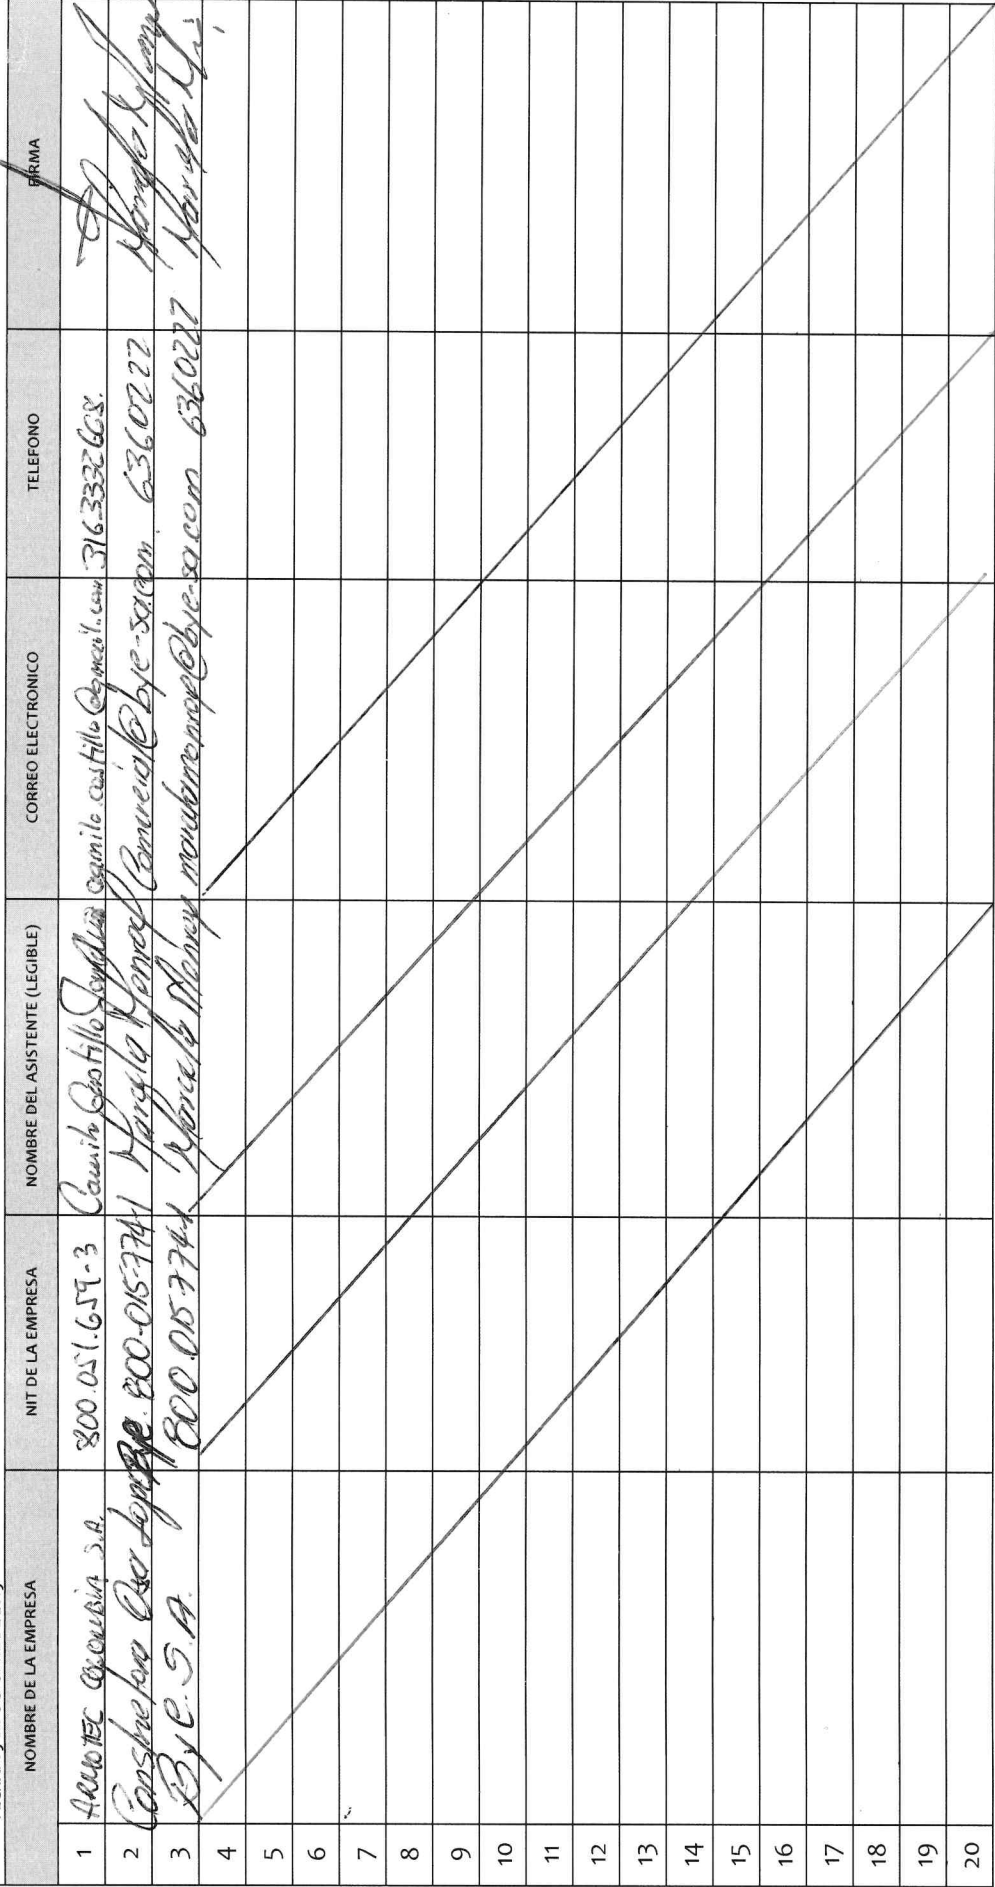 NOMBRE DE LA EMPRESA NIT DE LA EMPRESA NOMBRE DEL ASISTENTE (LEGIBLE) CORREO ELECTRONICO TELEFONO FIRMA
1 ARMOTEC COLOMBIA S.A. 800.051.659-3 Camilo Castillo camilo.castillo@gmail.com 3163332608.
2 Constructora 800-015-774-1 Marcela Monroy Comercial@bye-sa.com 6360222
3 ByC. S.A. 800.015.774-1 Marcela Monroy 6360222
4
5
6
7
8
9
10
11
12
13
14
15
16
17
18
19
20